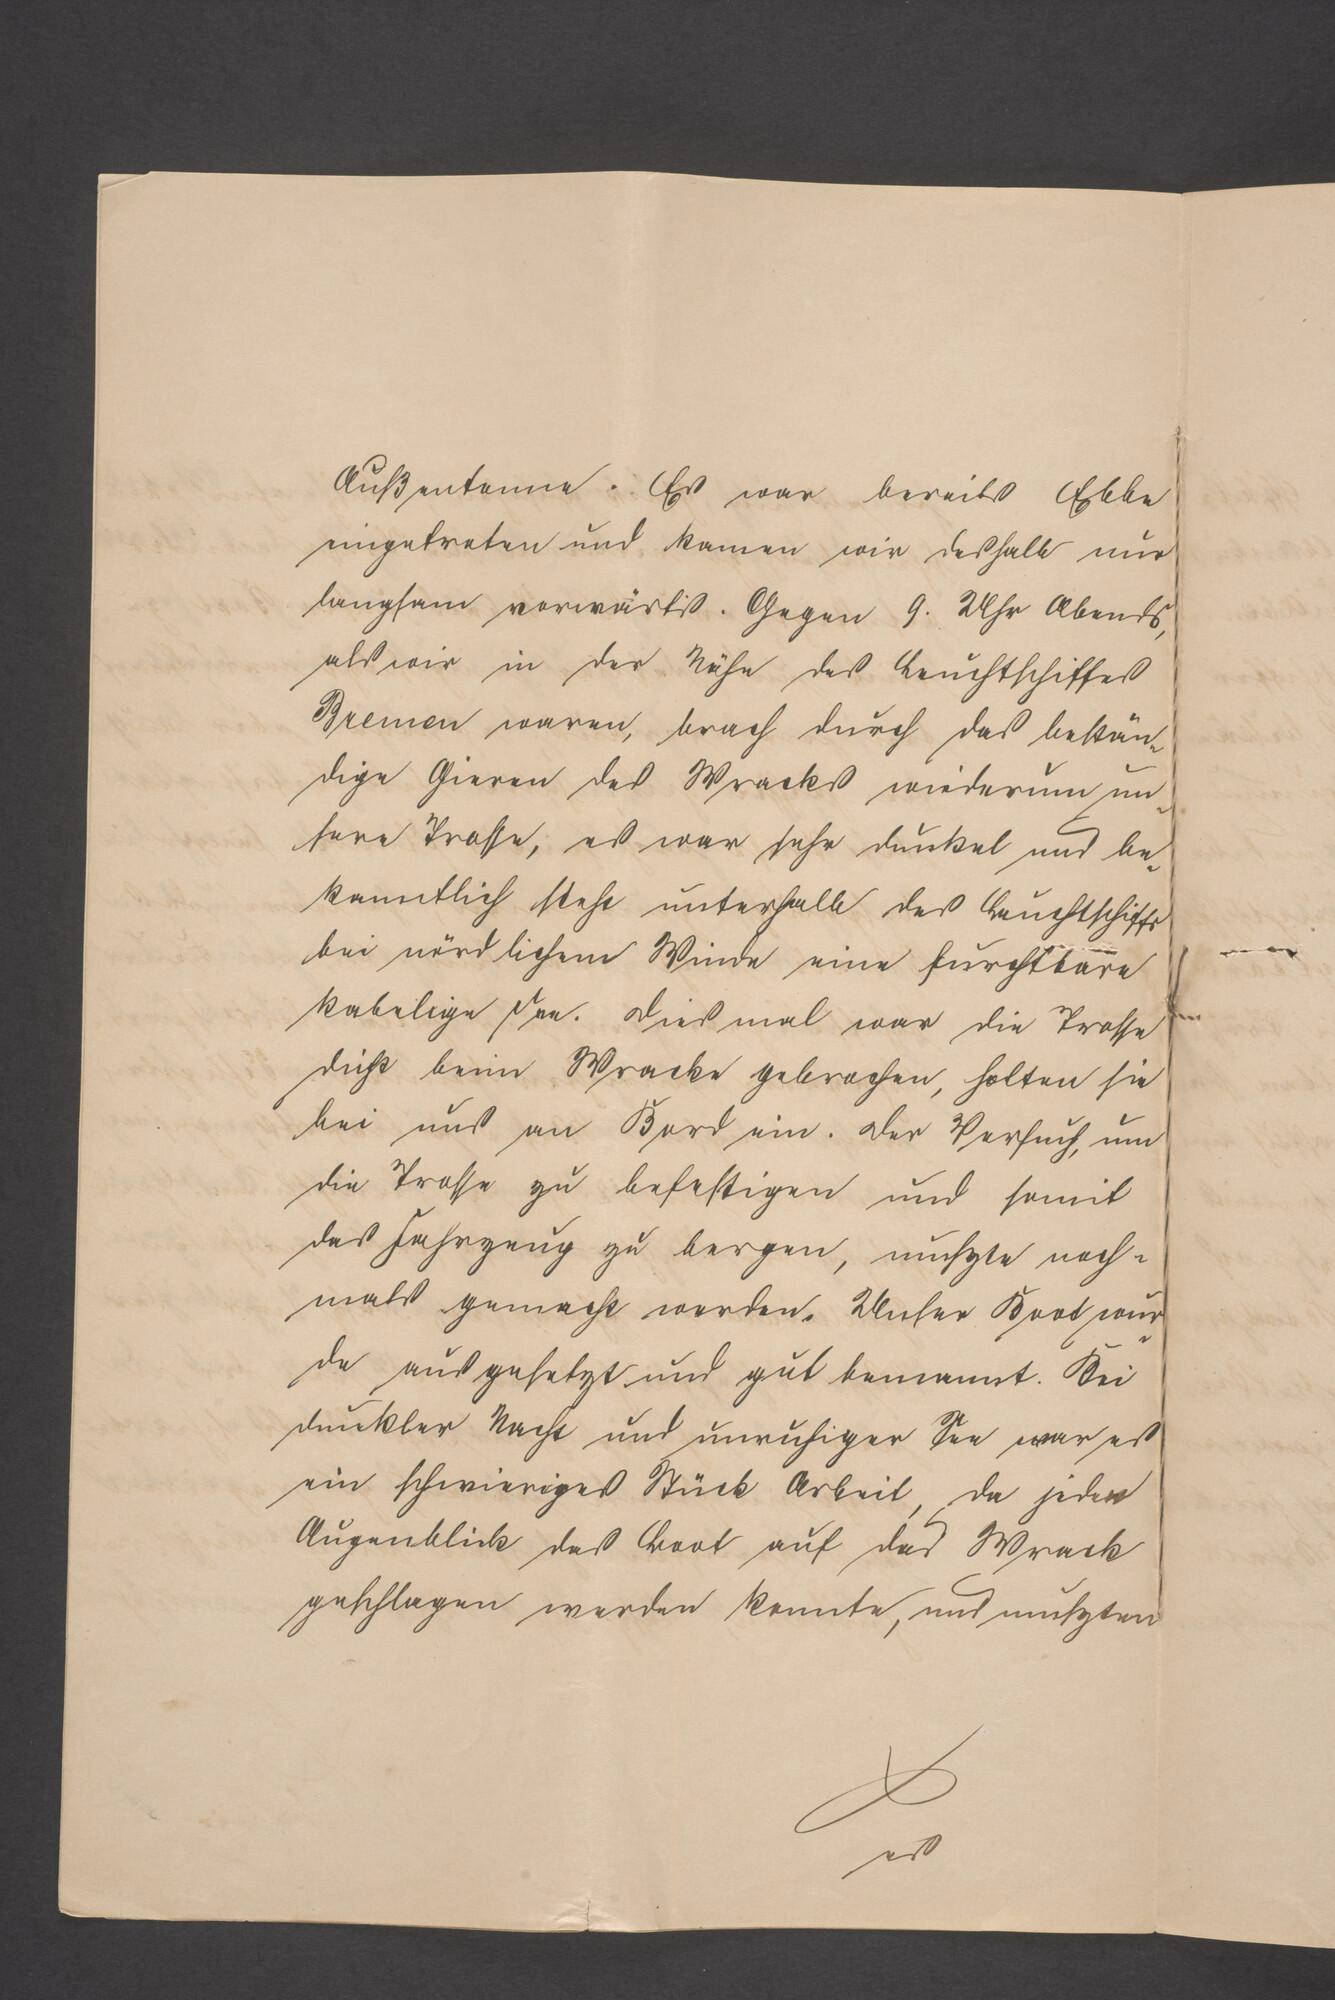 Außentonne. Es war bereits Ebbe
eingetreten und kamen wir deshalb nur
langsam vorwärts. Gegen 9. Uhr Abends,
als wir in der Nähe des Leuchtschiffes
Bremen waren, brach durch das bestän-
dige Gieren des Wracks wiederum un-
sere Trosse, es war sehr dunkel und be-
kanntlich steht unterhalb des Leuchtschiffs
bei nördlichem Winde eine furchtbare
kabelige See. Diesmal war die Trosse
dicht beim Wracke gebrochen, holten sie
bei uns an Bord ein. Der Versuch, um
die Trosse zu befestigen und somit
das Fahrzeug zu bergen, mußte noch-
mals gemacht werden. Unser Boot wur-
de ausgesetzt und gut bemannt. Bei
dunkler Nacht und unruhiger See war es
ein schwieriges Stück Arbeit, da jeden
Augenblick das Boot auf das Wrack
geschlagen werden konnte, und mußten
es